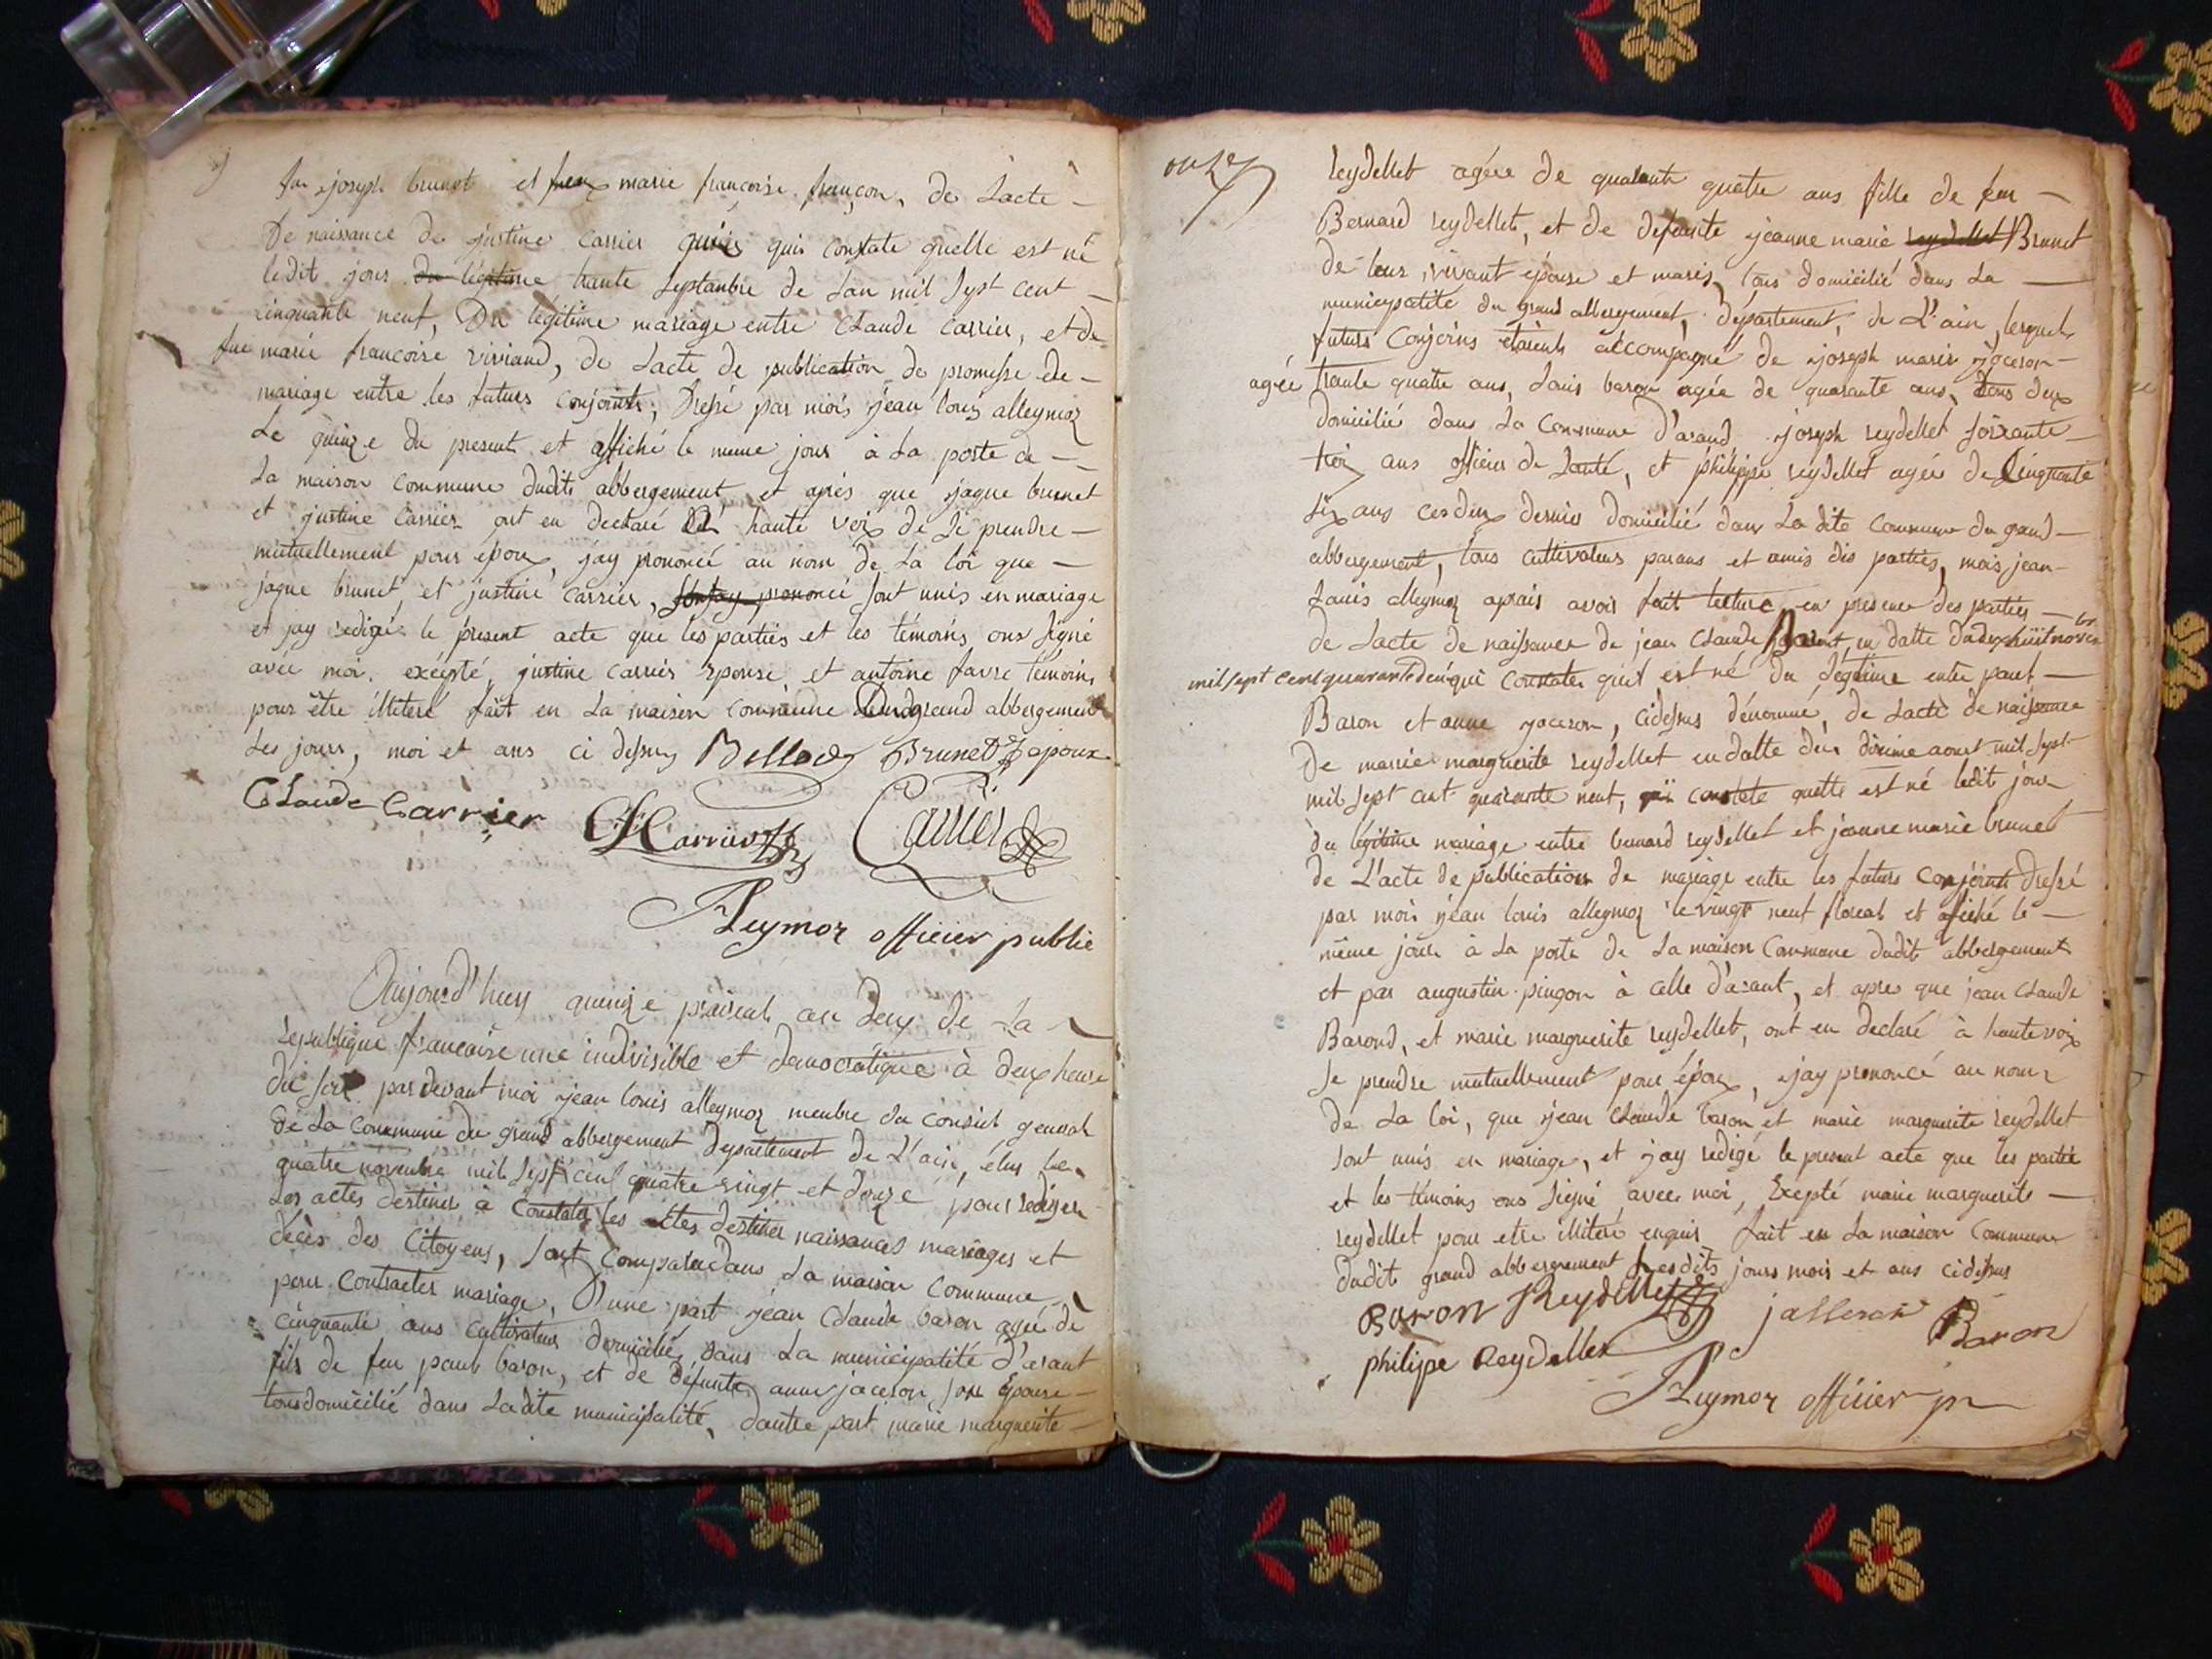 feu joseph brunet et feue marie françoise françon, de Lacte
De naissance de justine carrier quis constate quelle est né
ledit jour du légitime trante Septanbre de Lan mil Sept cent
cinquante neuf, Du légitime mariage entre Claude carrier, et de
fue marie francoise viviand, de Lacte de publication de promesse de
mariage entre les futurs conjoints, Dressé par mois jean louis alleymoz
Le quinze du present et affiché le meme jour à La porte de
La maison commune dudit abbergement et aprés que jaque brunet
et justine Carrier ont eu declaré à haute voix de Se prendre
mutuellement pour époux, jay prononcé au nom de La loi que
jaque brunet et justine carrier, sont jay prononcé sont unis en mariage
et jay redigé le présent acte que les parties et les témoins ons Signé
avec moi, exèpté justine carrier épouse, et antoine favre témoins
pour être illiteré fait en La maison commune Dud grand abbergement
Les jours, moi et ans ci dessus Bellod Brunet Lepoux
Claude Carrier Carrier Carrier
Aleymoz officier public
Aujourd'huy quinze prairial an deux de La
republique francaise une indivisible et democratique à deux heure
du soir par devant moi jean louis alleymoz membre du conseil general
de La commune du grand abbergement Departement de L'ain, élus le
quatre novembre mil Sept cent quatre vingt et douze pour rediger
Les actes destinés à Constater les actes destines naissances mariages et
décès des Citoyens, sont comparu dans La maison commune
pour contracter mariage, D'une part jean Claude baron agée de
cinquante ans cultivateur domicilié dans La municipalité d'arant
fils de feu paul baron, et de défunte anne jaceron son Epouse
tous domicilié dans Ladite municipalité, dautre part marie marguerite
onze
reydellet agée de quarante quatre ans fille de feu
Bernard reydellet, et de defunte jeanne marie reydellet Brunet
de leur vivant épouse et maris, tous domicilié dans La
municipalité du grand abbergement, département, de L'ain, lesquels
futurs Conjoins étaients accompagné de joseph marie jaceron
agée trante quatre ans, Louis baron agée de quarante ans, tous deux
domicilié dans La Commune d'arand joseph reydellet soixante
trois ans officier de santé, et philippe reydellet agée de Cinquante
Six ans ces deux dernier domicilié dans La dite commune du grand
abbergement, tous cultivateurs parans et amis des parties, mois jean
Louis alleymoz aprais avoir fait lecture en presence des parties
de Lacte de naissance de jean Claude Baront, en datte du dix huit novembr
mil sept cent quarante deu qui constate quil est né du légitime entre paul
Baron et anne jaceron, cidessus dénomé, de Lacte de naissance
De marie marguerite reydellet en datte du dixime aout mil Sept
mil Sept cent quarante neuf, qui constate quelle est né ledit jour
du légitime mariage entre bernard reydellet et jeanne marie brunet
de L'acte de publication de mariage entre les futurs conjoints dressé
par mois jean louis alleymoz le vingt neuf floreal et afiché le
même jour à La porte de La maison Commune dudit abbergement
et par augustin pingon à celle d'arant, et apres que jean Claude
Barond, et marie marguerite reydellet, ont eu declaré à haute voix
se prendre mutuellement pour époux, jay prononcé au nom
de La loi, que jean Claude baron et marie marguerite reydellet
sont unis en mariage, et jay redigé le present acte que les partie
et les témoins ons signé avec moi, Exépté marie marguerite
reydellet pour etre illiteré enquis fait en La maison commune
dudit grand abbergement Lesdits jours mois et ans cidessus
Baron Reydellet jasseron Baron
philipe Reydellet
Aleymoz officier p